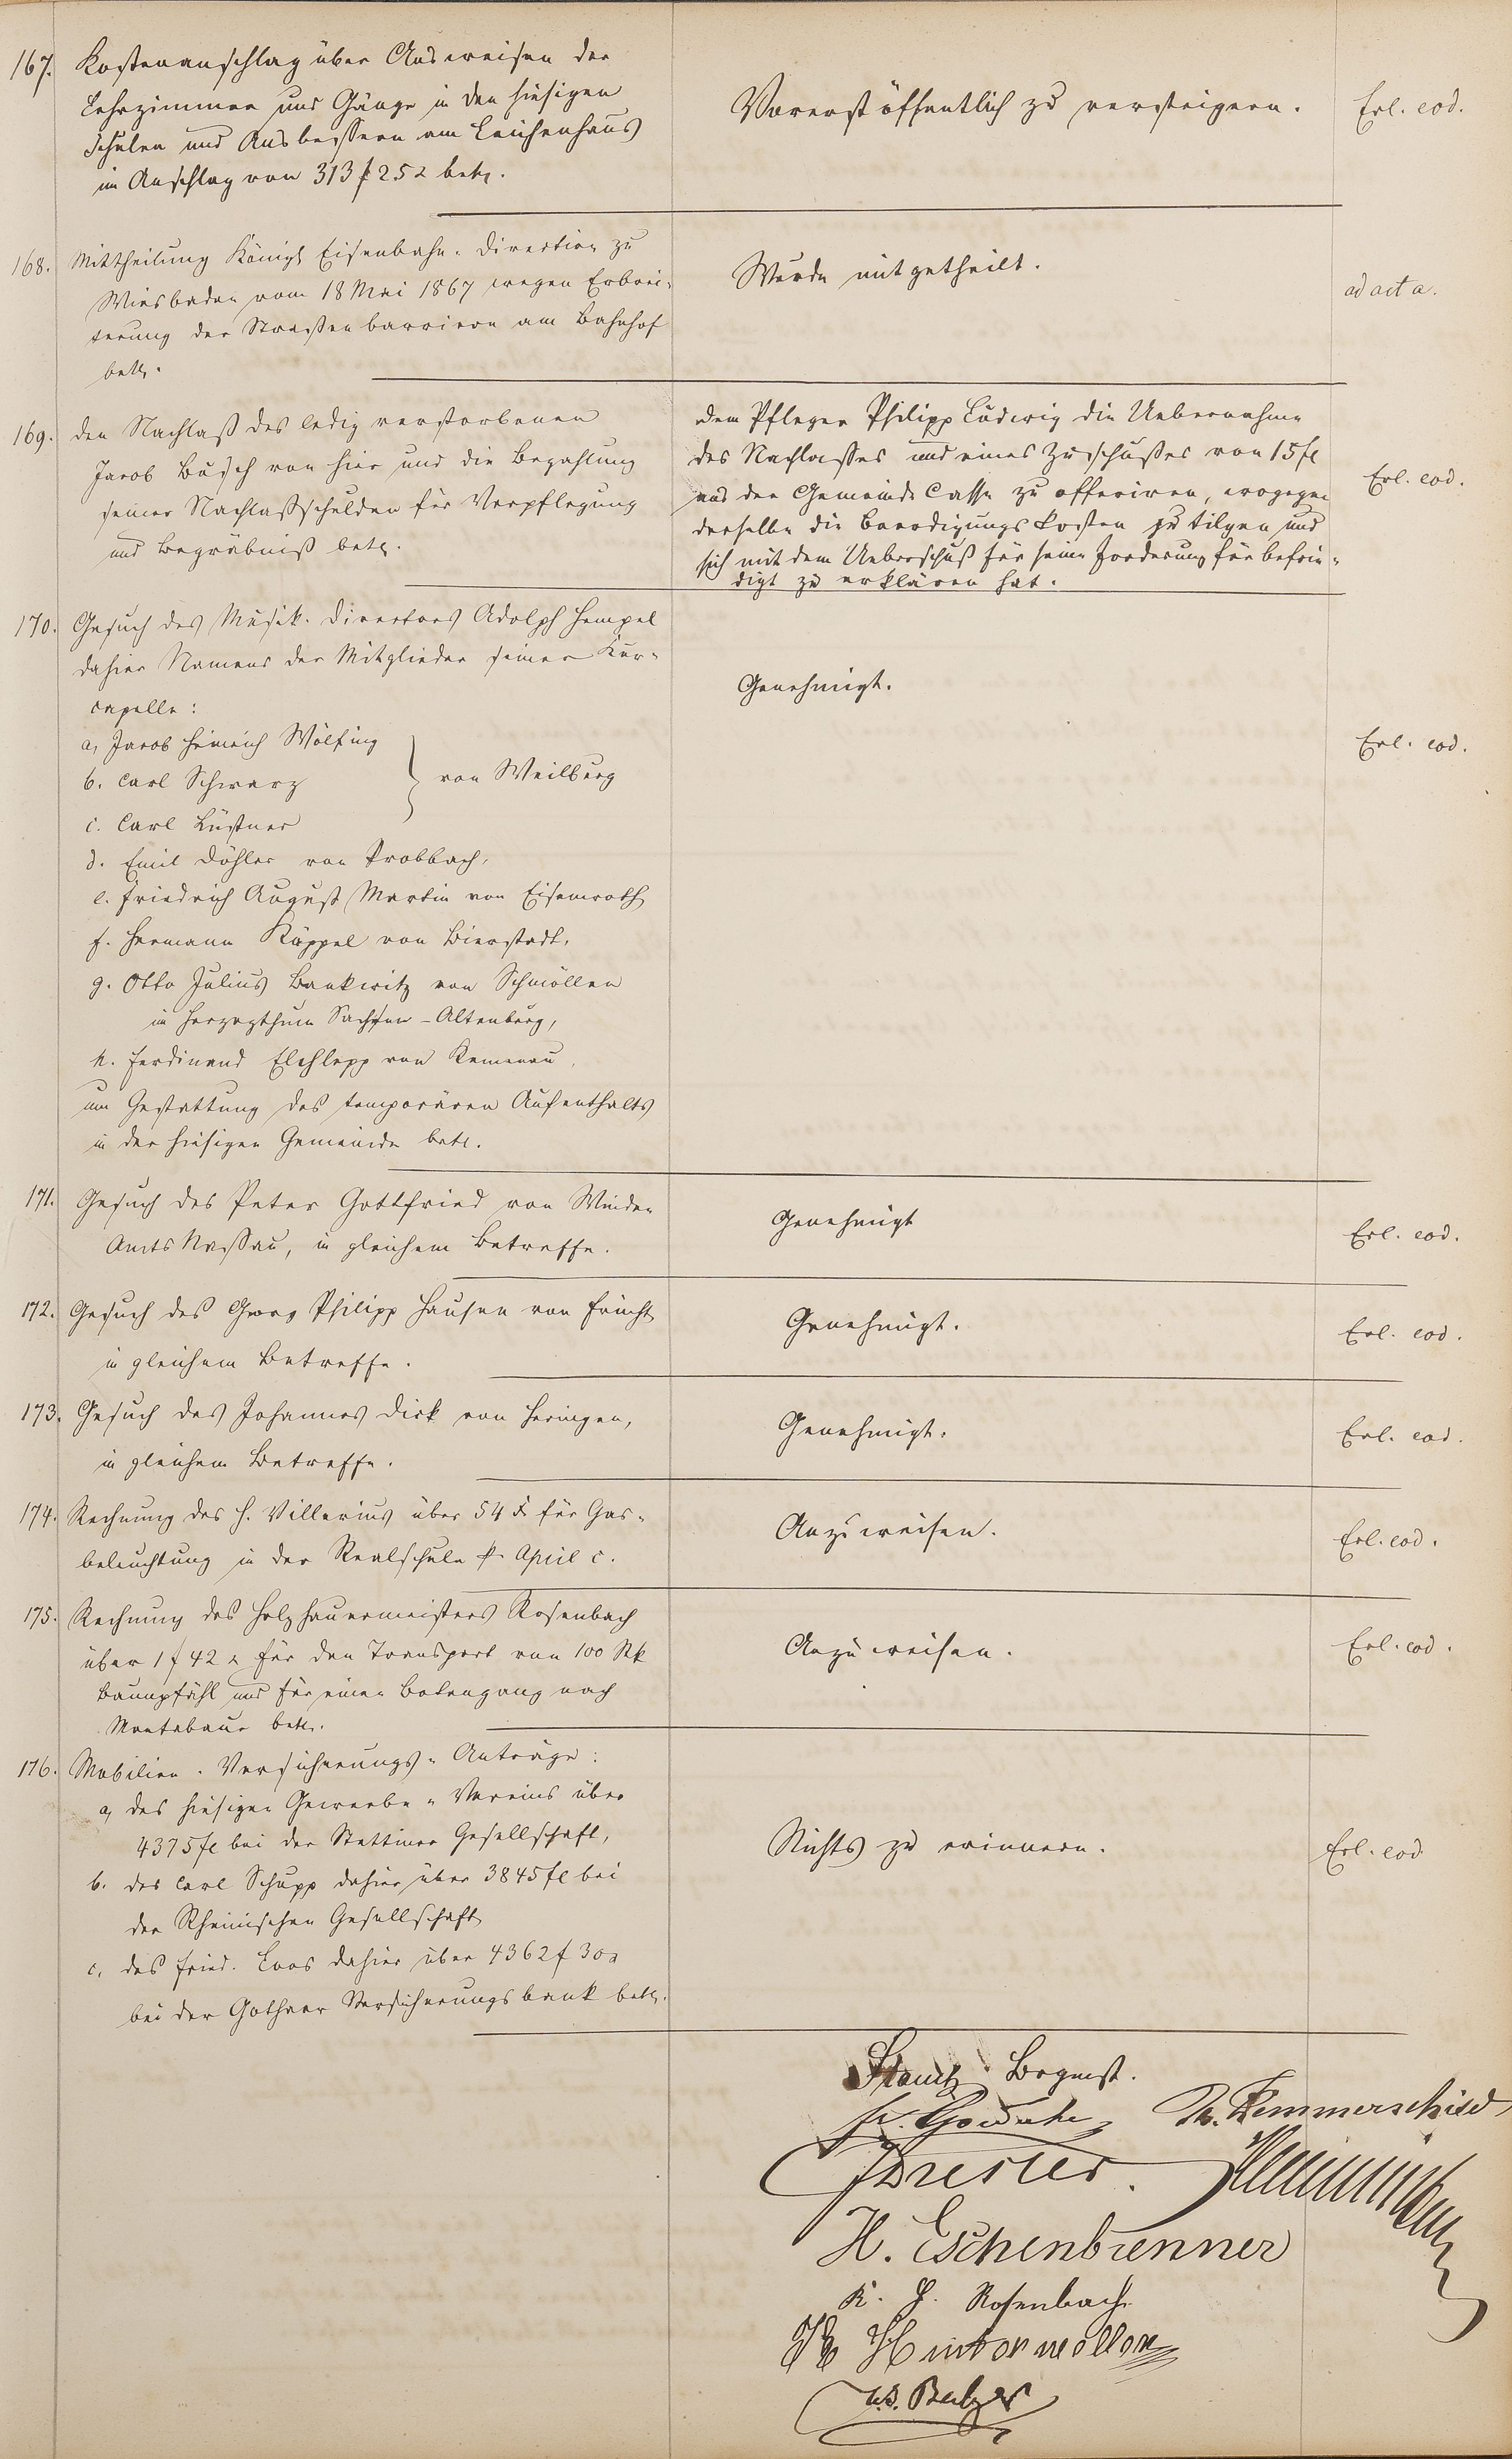 167. Kostenanschlag über Ausweisen der
Lehrzimmer und Gänge in den hiesigen
Schulen und Ausbessern am Leichenhaus
im Anschlag von 313 f 25 x betr.
Vorerst öffentlich zu versteigern.
Erl. eod.
168. Mittheilung Königl Eisenbahn-Direction zu
Wiesbaden vom 18 Mai 1867 wegen Erbrei-
terung der Straßenbarrieren am Bahnhof
betr.
Wurde mitgetheilt.
ad acta.
169. den Nachlaß des ledig verstorbenen
Jacob Busch von hier und die Bezahlung
seiner Nachlaßschulden für Verpflegung
und Begräbniß betr.
dem Pfleger Philipp Ludwig die Uebernahme
des Nachlasses und eines Zuschußes von 15 fl
aus der Gemeinde Casse zu offeriren, wogegen
derselbe die Beerdigungskosten zu tilgen und
sich mit dem Ueberschuß für seine Forderung für befrie-
digt zu erklären hat.
Erl. eod.
170. Gesuch des Musik-Directors Adolph Hempel
dahier Namens der Mitglieder seiner Kur-
capelle:
a, Jacob Heinrich Wölfing
b. Carl Schwarz
c. Carl Lüstner
von Weilburg
d. Emil Döhler von Probbach,
e. Friedrich August Martin von Eisemroth
f. Hermann Küppel von Bierstadt,
g. Otto Julius Bankwitz von Schmöllen
in Herzogthum Sachsen-Altenburg,
h. Ferdinand Elchlepp von Remenau,
um Gestattung des temporären Aufenthalts
in der hiesigen Gemeinde betr.
Genehmigt.
Erl. eod.
171. Gesuch des Peter Gottfried von Winden
Amts Nassau, in gleichem Betreffe.
Genehmigt
Erl. eod.
172. Gesuch des Georg Philipp Hausen von Frücht
in gleichem Betreffe.
Genehmigt.
Erl. eod.
173. Gesuch des Johannes Dick von Heringen,
in gleichem Betreffe.
Genehmigt.
Erl. eod.
174. Rechnung des H. Villarius über 54 x für Gas-
beleuchtung in der Realschule p April c.
Anzuweisen.
Erl. eod.
175. Rechnung des Holzhauermeisters Rosenbach
über 1 f 42 x für den Transport von 100 Stk
Baumpfähl und für einen Botengang nach
Montabaur betr.
Anzuweisen.
Erl. eod.
176. Mobilien-Versicherungs-Anträge:
a, des hiesigen Gewerbe-Vereins über
4375 fl bei der Stettiner Gesellschaft,
b. des Carl Schupp dahier über 3845 fl bei
der Rheinischen Gesellschaft
c, des Fried. Loos dahier über 4362 f 30 x
bei der Gothaer Versicherungsbank betr.
Nichts zu erinnern.
Erl. eod
Bogmst.
Th. Kemmerschied
H. Eschenbrenner
K. H. Rosenbach
Hintermeller
W. Balzer